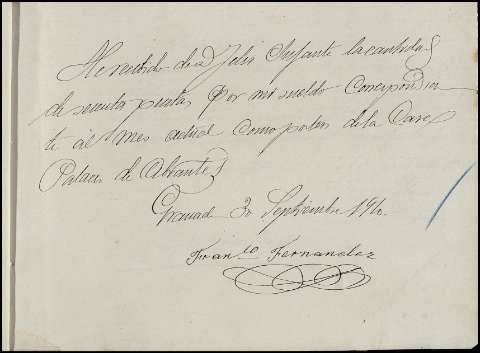 He recibido de D Felix Infante la cantidad
de sesenta pesetas por mi sueldo correspondien
te al mes actual como portero de la Casa
Palacio de Abrantes
Granada 30 Septiembre 191
Franco Fernandez